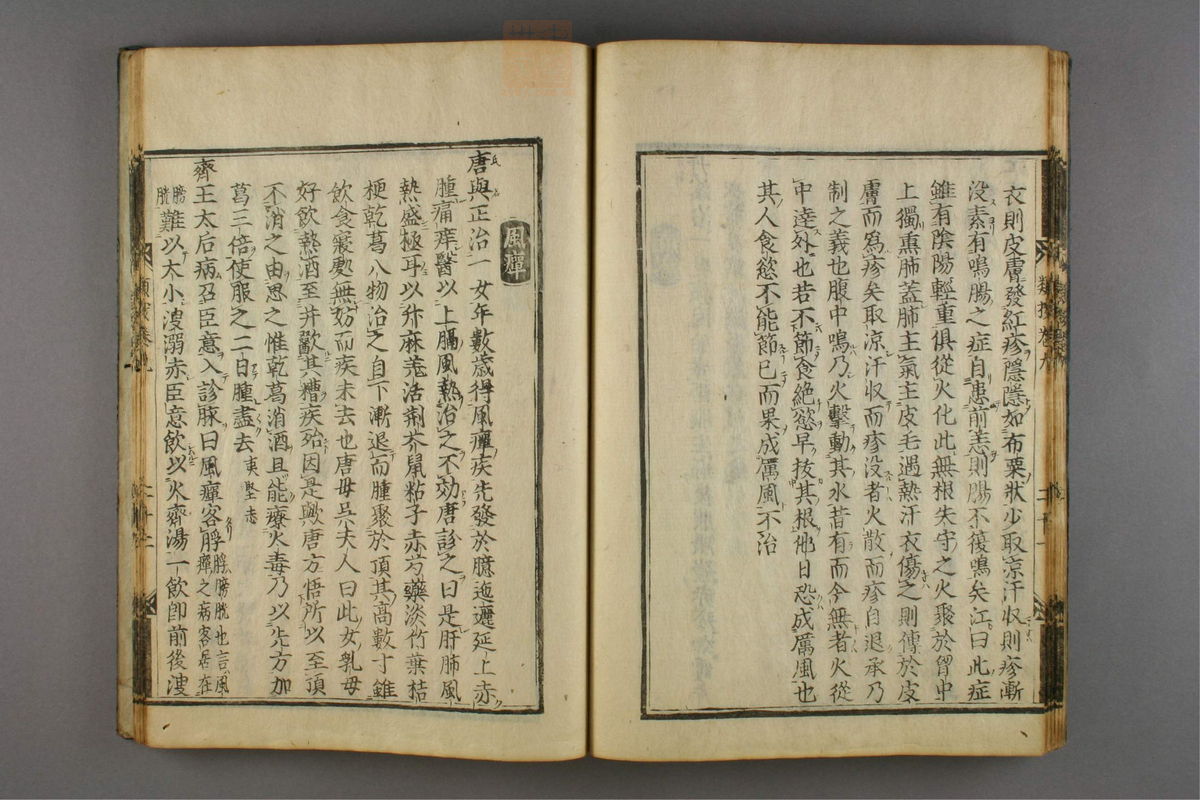 衣則皮膚發紅疹隱隱如布粟狀少取凉汗收則疹漸
没素有鳴腸之症自患前恙則腸不復鳴矣江曰此症
雖有陰陽輕重俱從火化此無根失守之火聚於胷中
上獨熏肺蓋肺主氣主皮毛遇熱汗衣傷之則傳於皮
膚而爲疹矣取凉汗收而疹没者火散而疹自退承乃
制之義也腹中鳴乃火擊動其水昔有而今無者火從
中達外也若不節食絶慾早拔其根他日恐成厲風也
其人食慾不能節已而果成厲風不治
風癉
唐與正治一女年數歲得風癉疾先發於臆迤邐延上赤
腫痛痒醫以上膈風熱治之不効唐診之曰是肝肺風
熱盛極耳以升麻羗活荆芥鼠粘子赤芍藥淡竹葉桔
梗乾葛八物治之自下漸退而腫聚於頂其高數寸雖
飲食寢處無妨而疾未去也唐母吴夫人曰此女乳母
好飲熱酒至并歠其糟疾殆因是歟唐方悟所以至頂
不消之由思之惟乾葛消酒且能療火毒乃以先方加
葛三倍使服之二日腫盡去夷堅志
齊王太后病召臣意入診脉曰風癉客脬脬膀胱也言風癉之病客居在
膀胱難以大小溲溺赤臣意飲以火齊湯一飲即前後溲